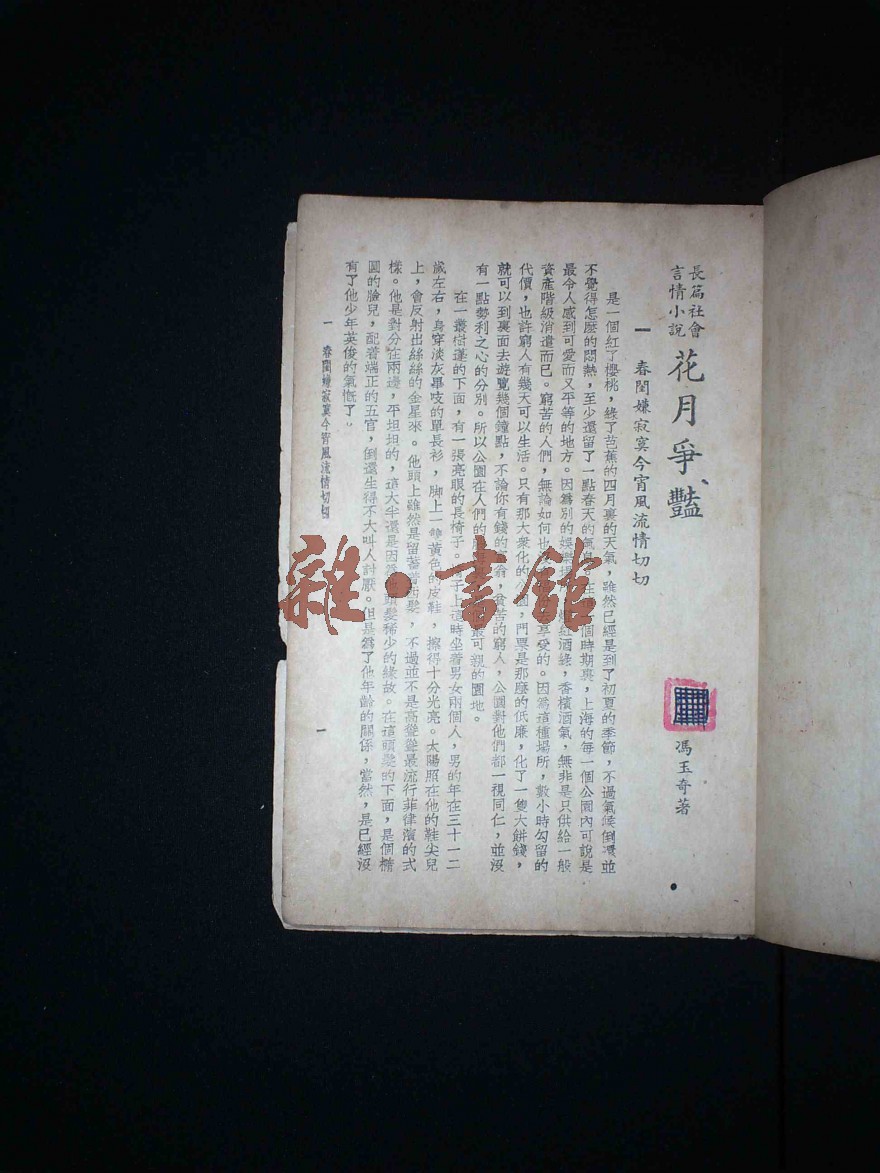 長篇社會
言情小說
花月爭豔
馮玉奇著
一 春閨嫌寂寞今宵風流情切切
是一個紅了櫻桃，綠了芭蕉的四月裏的天氣，雖然已經是到了初夏的季節，不過氣候倒還並
不覺得怎麼的悶熱，至少還留了一點春天的氣息。在這個時期裏，上海的每一個公園內可說是
最令人感到可愛而又平等的地方。因爲別的娛樂紅酒綠，香檳酒氣，無非是只供給一般
資產階級消遣而已。窮苦的人們，無論如何也享受的。因爲這種場所，數小時勾留的
代價，也許窮人有幾天可以生活。只有那大衆化的公園，門票是那麼的低廉，化了一隻大餅錢，
就可以到裏面去遊覽幾個鐘點，不論你有錢的富翁，貧苦的窮人，公園對他們都一視同仁，並沒
有一點勢利之心的分別。所以公園在人們的最可親的園地。
在一叢樹蓬的下面，有一張亮眼的長椅子。椅子上這時坐着男女兩個人，男的年在三十一二
歲左右，身穿淡灰嗶吱的單長衫，脚上一雙黃色的皮鞋，擦得十分光亮。太陽照在他的鞋尖兒
上，會反射出絲絲的金星來。他頭上雖然是留蓄着西髮，不過並不是高聳聳最流行菲律濱的式
樣。他是對分在兩邊，平坦坦的，這大半還是因爲他頭髮稀少的緣故。在這頭髮的下面，是個橢
圓的臉兒，配着端正的五官，倒還生得不大叫人討厭。但是爲了他年齡的關係，當然，是已經沒
有了他少年英俊的氣慨了。
一 春閨嫌寂寞今宵風流情切切
一
雜·書館